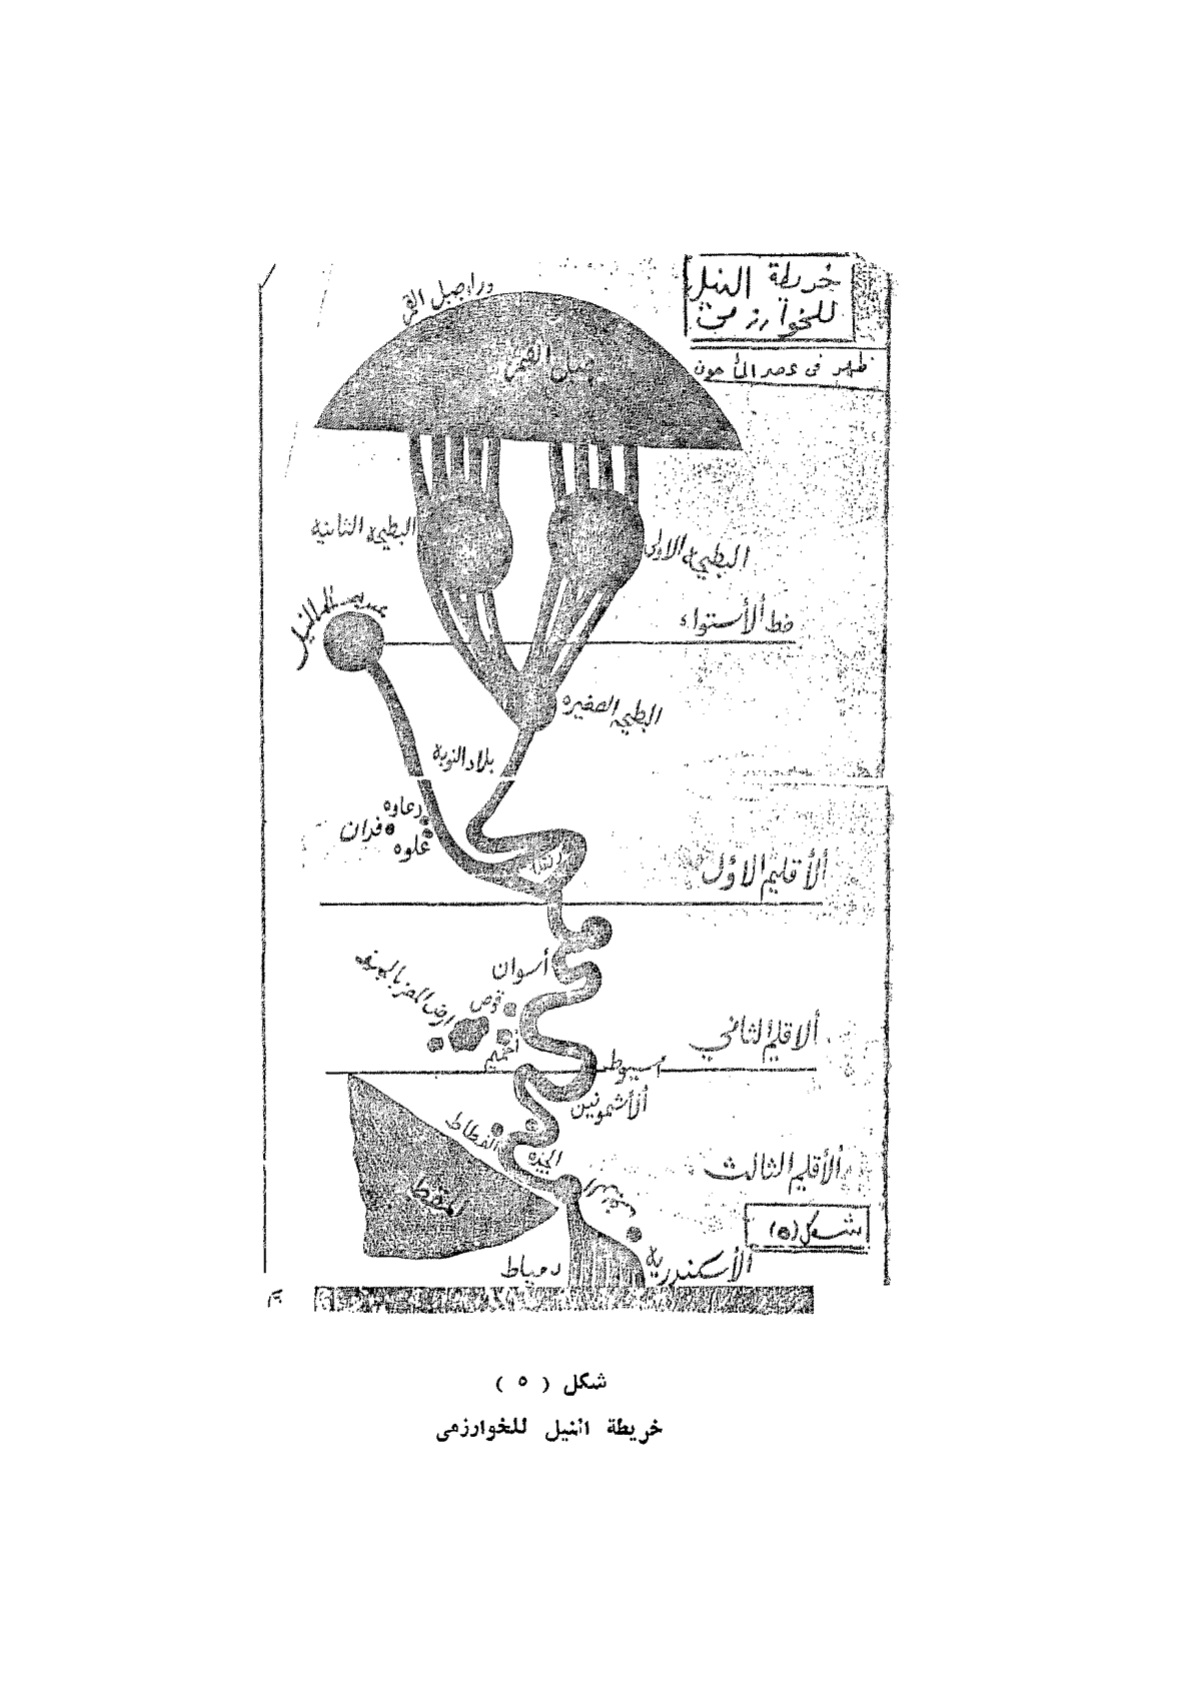 خريطة النيل
للخوارزمى
ظهر فى عصر المأمون
وراء جبل القمر
جبل القمر
البطيحة الثانية
البطيحة الاولى
خط ألأستواء
البطيحه الصغيره
بلاد النوبة
دعاوه
فزان
علوه
ألأقليم الاؤل
أسوان
قوص
أخميم
ألاقليم الثاني
أسيوط
ألأشمونين
الفسطاط
الجيزه
ألأقليم الثالث
شكل (٥)
دمياط
الأسكندرية
شكل ( ٥ )
خريطة النيل للخوارزمى